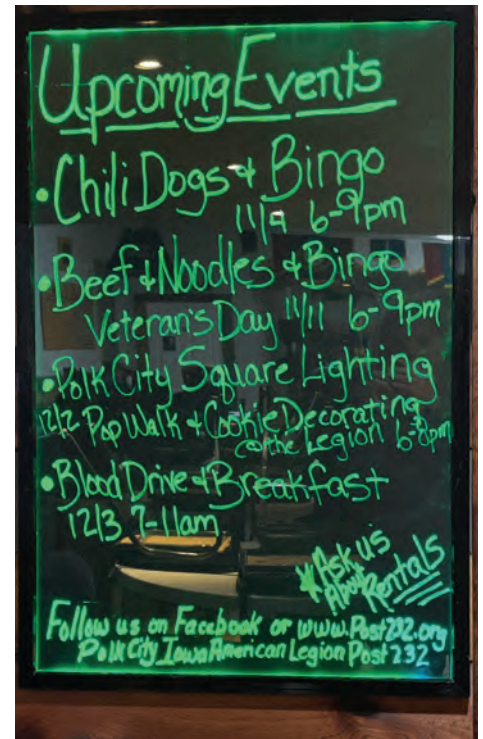 Upcoming Events
• Chili Dogs + Bingo
11/4 6-9pm
• Beef + Noodles + Bingo
Veteran's Day 11/11 6-9pm
• Polk City Square Lighting
12/2 Pop Walk + Cookie Decorating
@ the Legion 6-8pm
• Blood Drive + Breakfast
12/3 7-11am
*Ask us
About
Rentals
Follow us on Facebook or www.Post232.org
Polk City Iowa American Legion Post 232